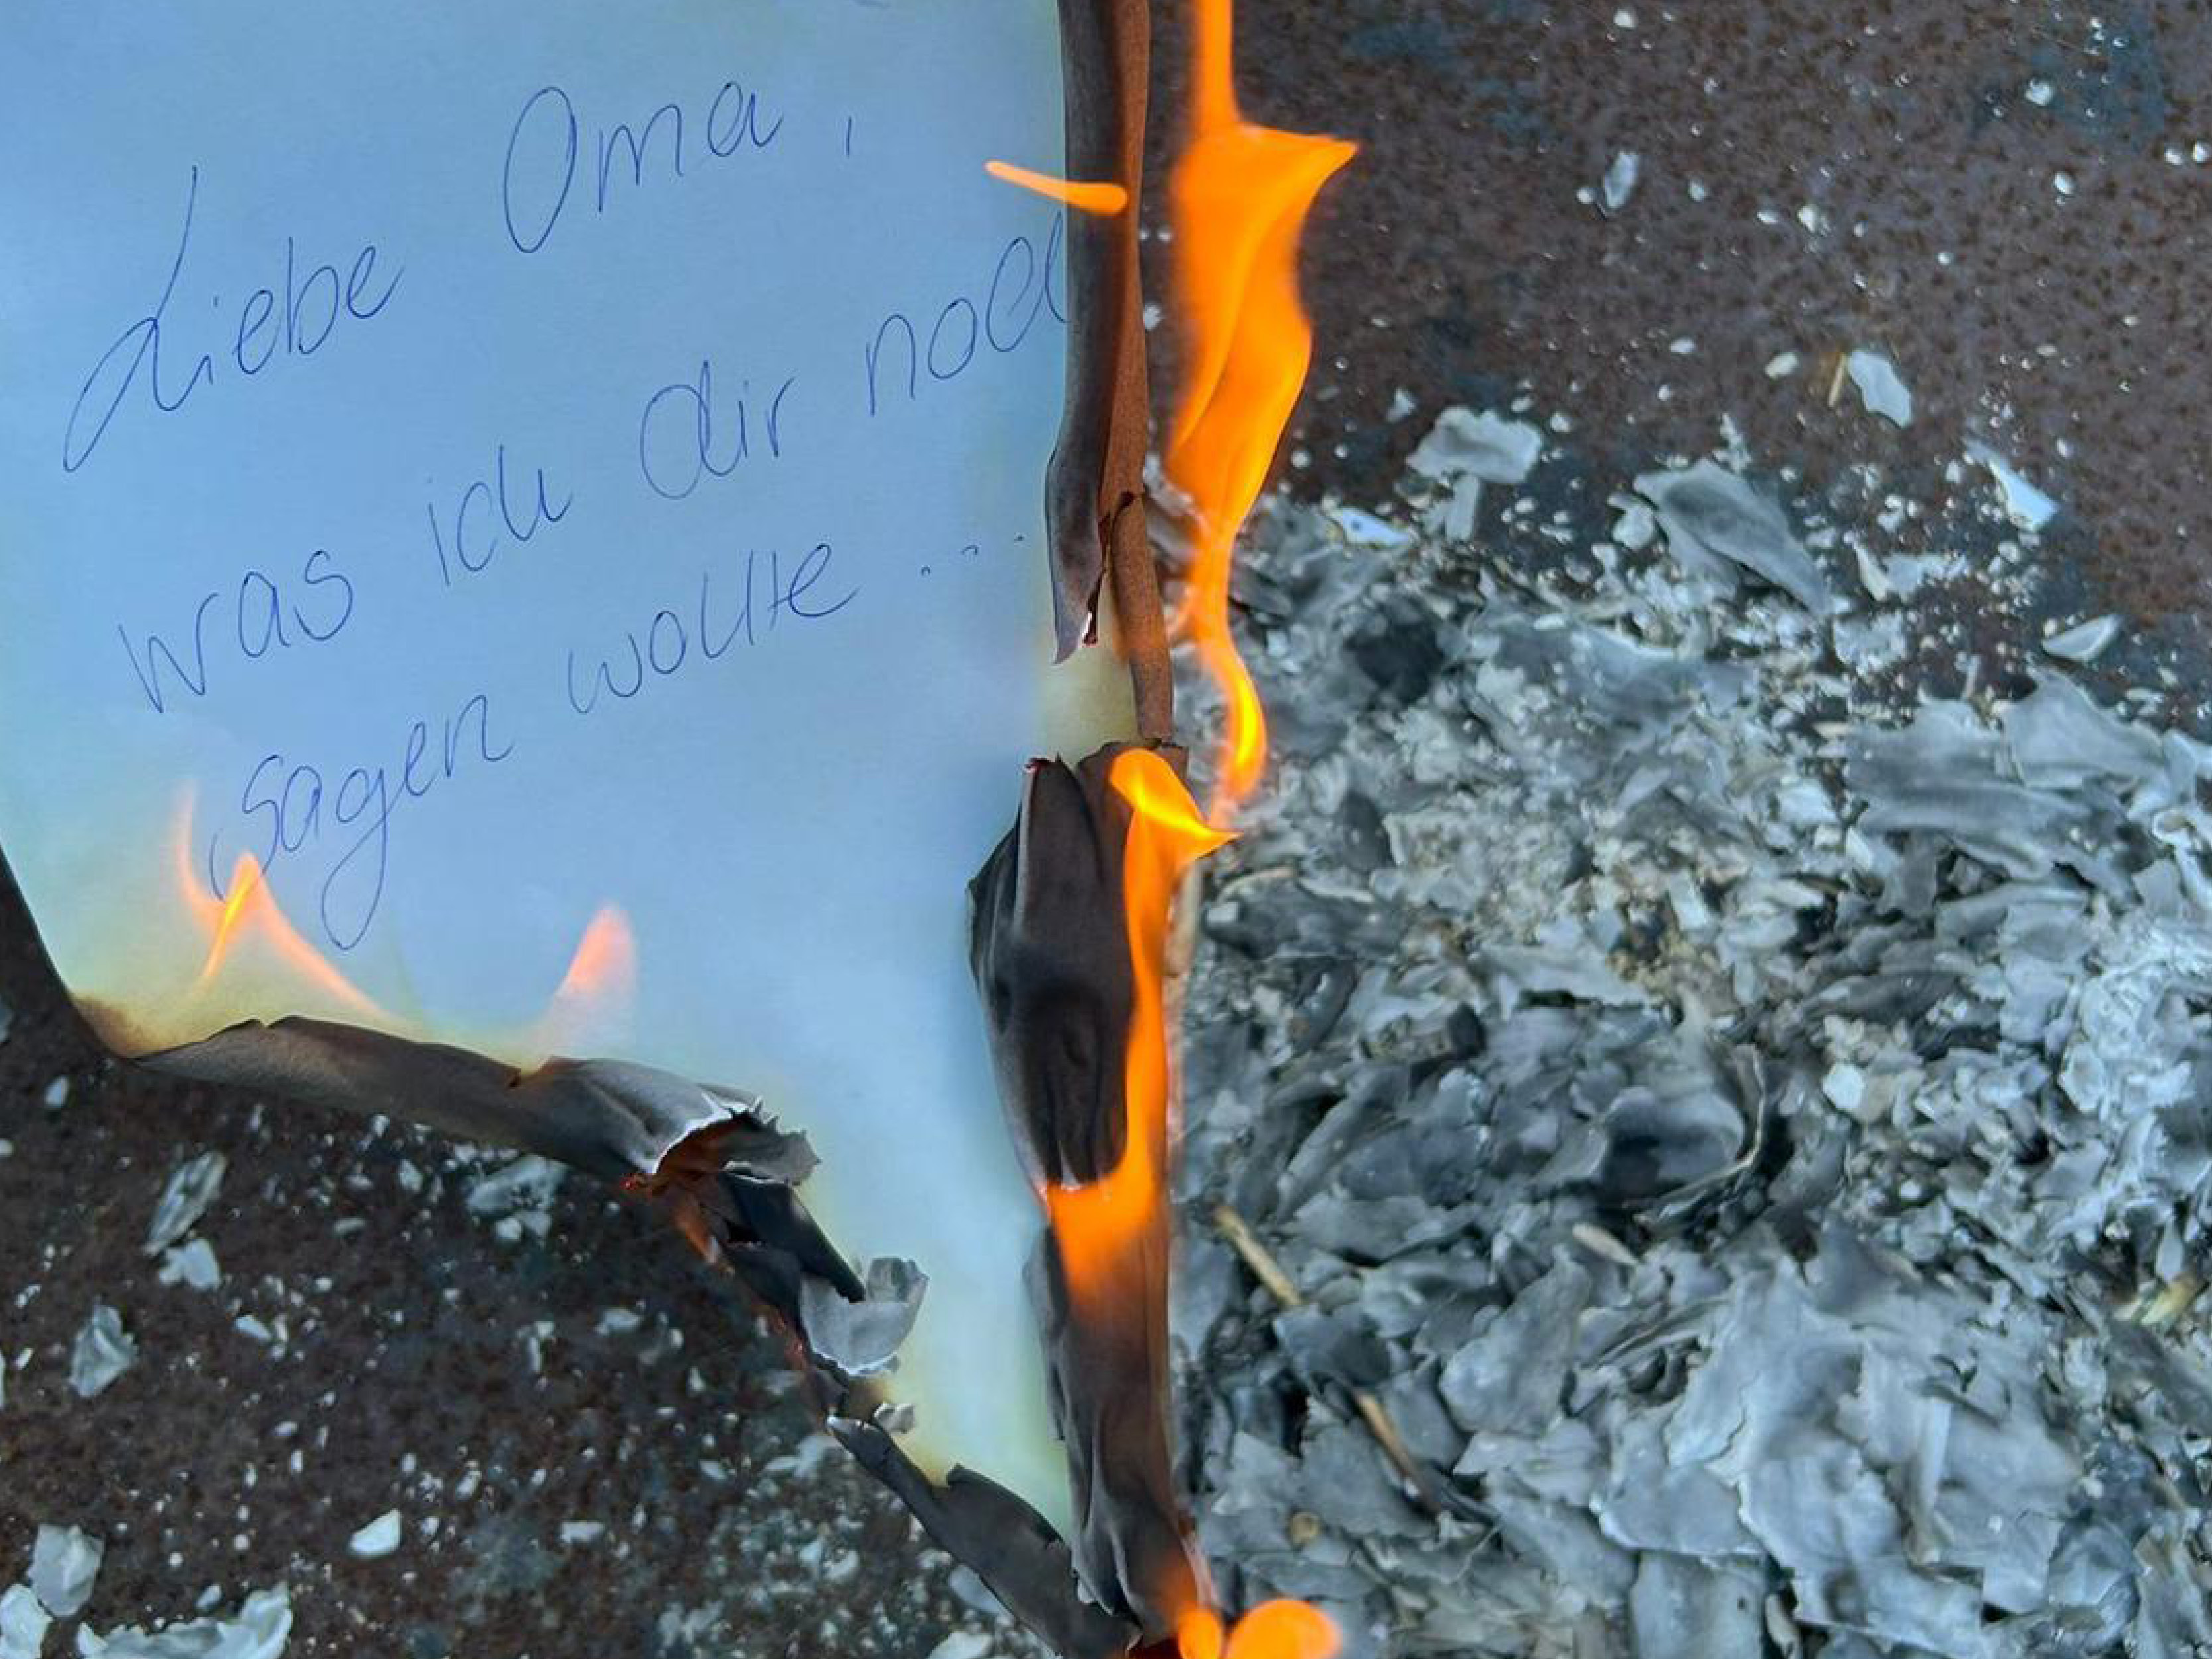 Liebe Oma,
was ich dir noc
sagen wollte ...